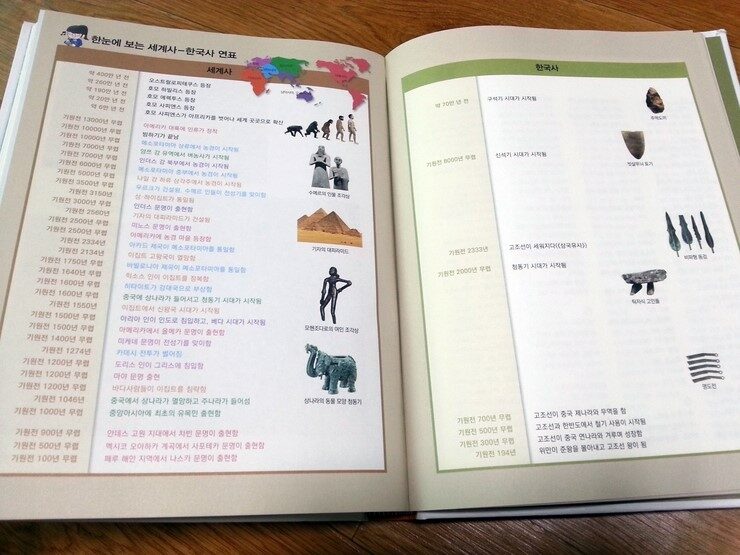 한눈에 보는 세계사-한국사 연표
세계사
약 400만 년 전 오스트랄로피테쿠스 등장
약 250만 년 전 호모 하빌리스 등장
약 190만 년 전 호모 에렉투스 등장
약 20만 년 전 호모 사피엔스 등장
약 6만 년 전 호모 사피엔스가 아프리카를 벗어나 세계 곳곳으로 확산
기원전 13000년 무렵 아메리카 대륙에 인류가 정착
기원전 10000년 무렵 빙하기가 끝남
기원전 10000년 무렵 메소포타미아 상류에서 농경이 시작됨
기원전 7000년 무렵 양쯔 강 유역에서 벼농사가 시작됨
기원전 7000년 무렵 인더스 강 북부에서 농경이 시작됨
기원전 6000년 무렵 메소포타미아 중부에서 농경이 시작됨
기원전 5000년 무렵 나일 강 하류 삼각주에서 농경이 시작됨
기원전 3500년 무렵 우르크가 건설됨, 수메르 인들이 전성기를 맞이함
기원전 3150년 무렵 상·하이집트가 통일됨
기원전 3000년 무렵 인더스 문명이 출현함
기원전 2560년 기자의 대피라미드가 건설됨
기원전 2500년 무렵 미노스 문명이 출현함
기원전 2500년 무렵 아메리카에 농경 마을 등장함
기원전 2334년 아카드 제국이 메소포타미아를 통일함
기원전 2134년 이집트 고왕국이 멸망함
기원전 1750년 무렵 바빌로니아 제국이 메소포타미아를 통일함
기원전 1640년 무렵 힉소스 인이 이집트를 정복함
기원전 1600년 무렵 히타이트가 강대국으로 부상함
기원전 1600년 무렵 중국에 상나라가 들어서고 청동기 시대가 시작됨
기원전 1550년 이집트에서 신왕국 시대가 시작됨
기원전 1500년 무렵 아리아 인이 인도로 침입하고, 베다 시대가 시작됨
기원전 1500년 무렵 아메리카에서 올메카 문명이 출현함
기원전 1400년 무렵 미케네 문명이 전성기를 맞이함
기원전 1274년 카데시 전투가 벌어짐
기원전 1200년 무렵 도리스 인이 그리스에 침입함
기원전 1200년 무렵 마야 문명 출현
기원전 1200년 무렵 바다사람들이 이집트를 침략함
기원전 1046년 중국에서 상나라가 멸망하고 주나라가 들어섬
기원전 1000년 무렵 중앙아시아에 최초의 유목민 출현함
기원전 900년 무렵 안데스 고원 지대에서 차빈 문명이 출현함
기원전 500년 무렵 멕시코 오아하카 계곡에서 사포테카 문명이 출현함
기원전 100년 무렵 페루 해안 지역에서 나스카 문명이 출현함
수메르의 인물 조각상
기자의 대피라미드
모헨조다로의 여인 조각상
상나라의 동물 모양 청동기
한국사
약 70만 년 전 구석기 시대가 시작됨
기원전 8000년 무렵 신석기 시대가 시작됨
기원전 2333년 고조선이 세워지다(《삼국유사》)
기원전 2000년 무렵 청동기 시대가 시작됨
기원전 700년 무렵 고조선이 중국 제나라와 무역을 함
기원전 500년 무렵 고조선과 한반도에서 철기 사용이 시작됨
기원전 300년 무렵 고조선이 중국 연나라와 겨루며 성장함
기원전 194년 위만이 준왕을 몰아내고 고조선 왕이 됨
주먹도끼
빗살무늬 토기
비파형 동검
탁자식 고인돌
명도전